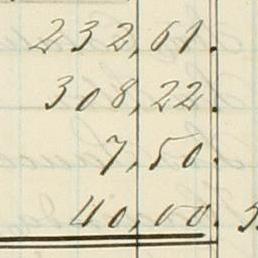 232,61.
308,22.
7,50.
40,00.